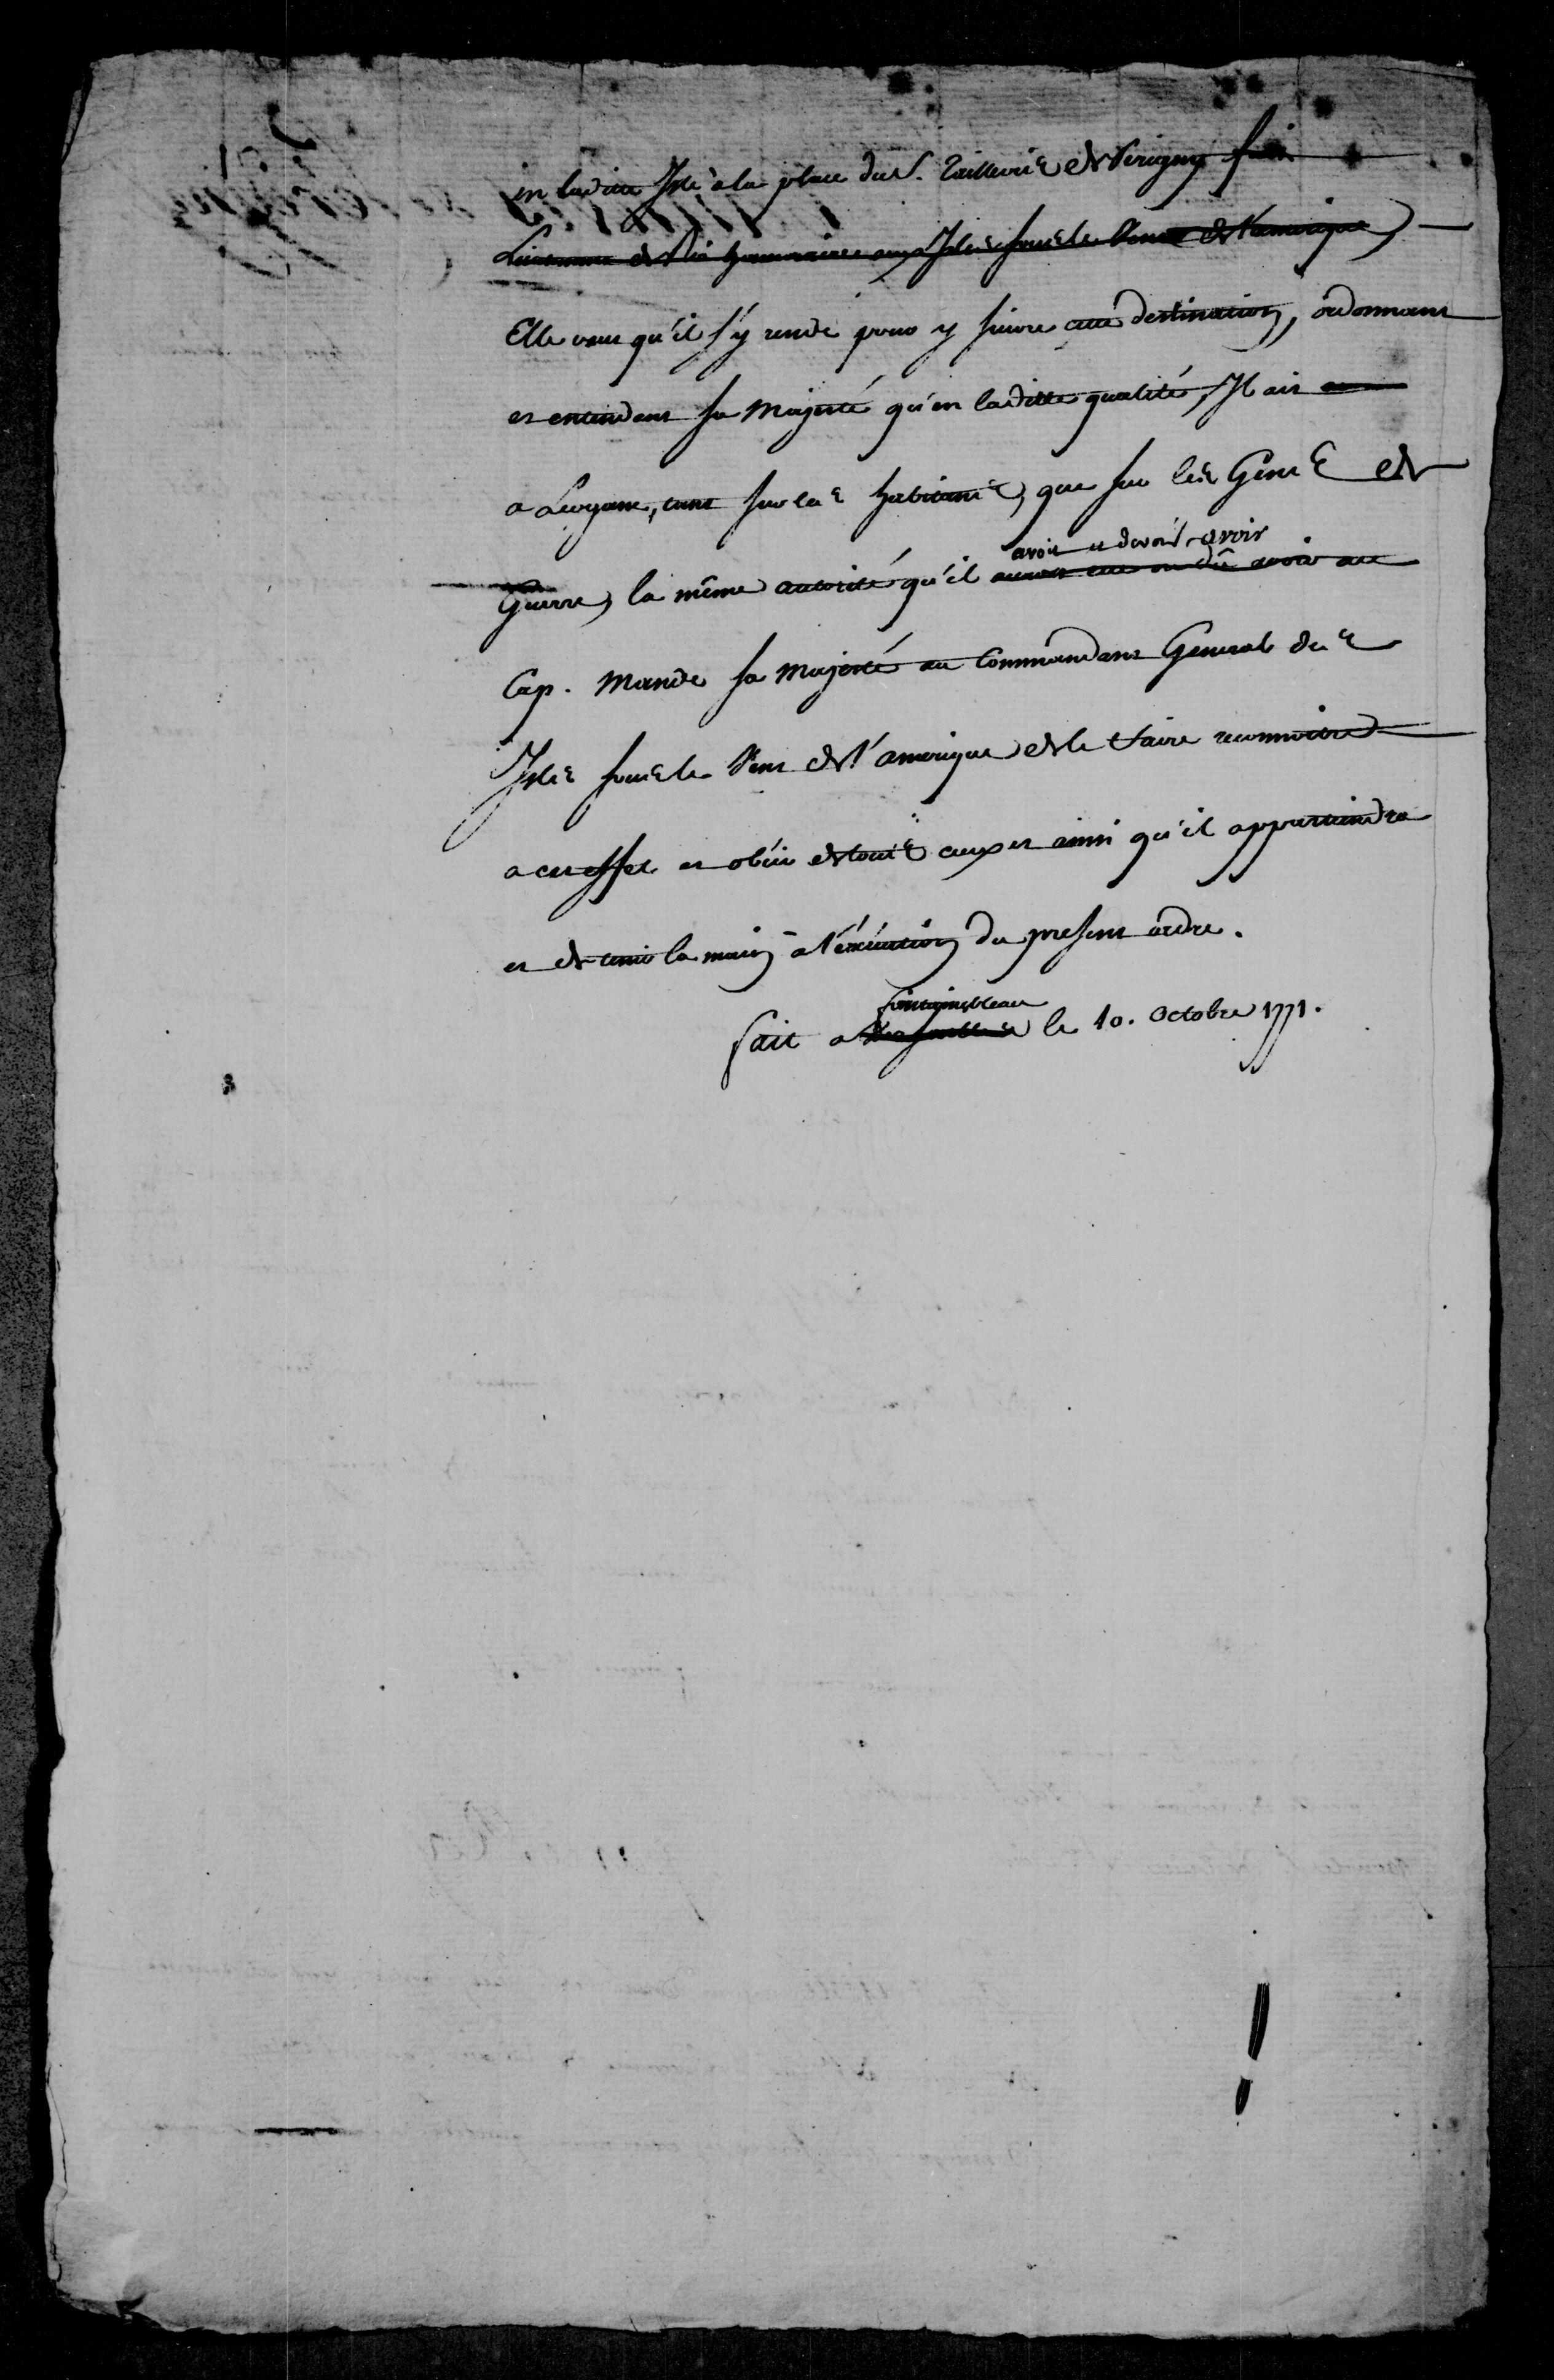 en laditte Isle à la place du S. Taillevis de Perigny fait
Lieutenant de Roi honnoraire aux Isles sous le Vent de l'amerique
Elle veut qu'il s'y rende pour y suivre cette destination, ordonnant
et entendant sa Majesté qu'en laditte qualité, Il ait
a Leogane, tant sur les habitants, que sur les Gens de
avoit et devoit avoir
Guerre, la même autorité qu'il auroit eue ou dû avoir au
Cap. Mande sa Majesté au Commandant General des
Isles sous le Vent de l'amerique de le faire reconnoitre
a cet effet et obéir de tous ceux et ainsi qu'il appartiendra
et de tenir la main à l'exécution du present ordre.
fontainebleau
fait a Versailles le 10. Octobre 1771.